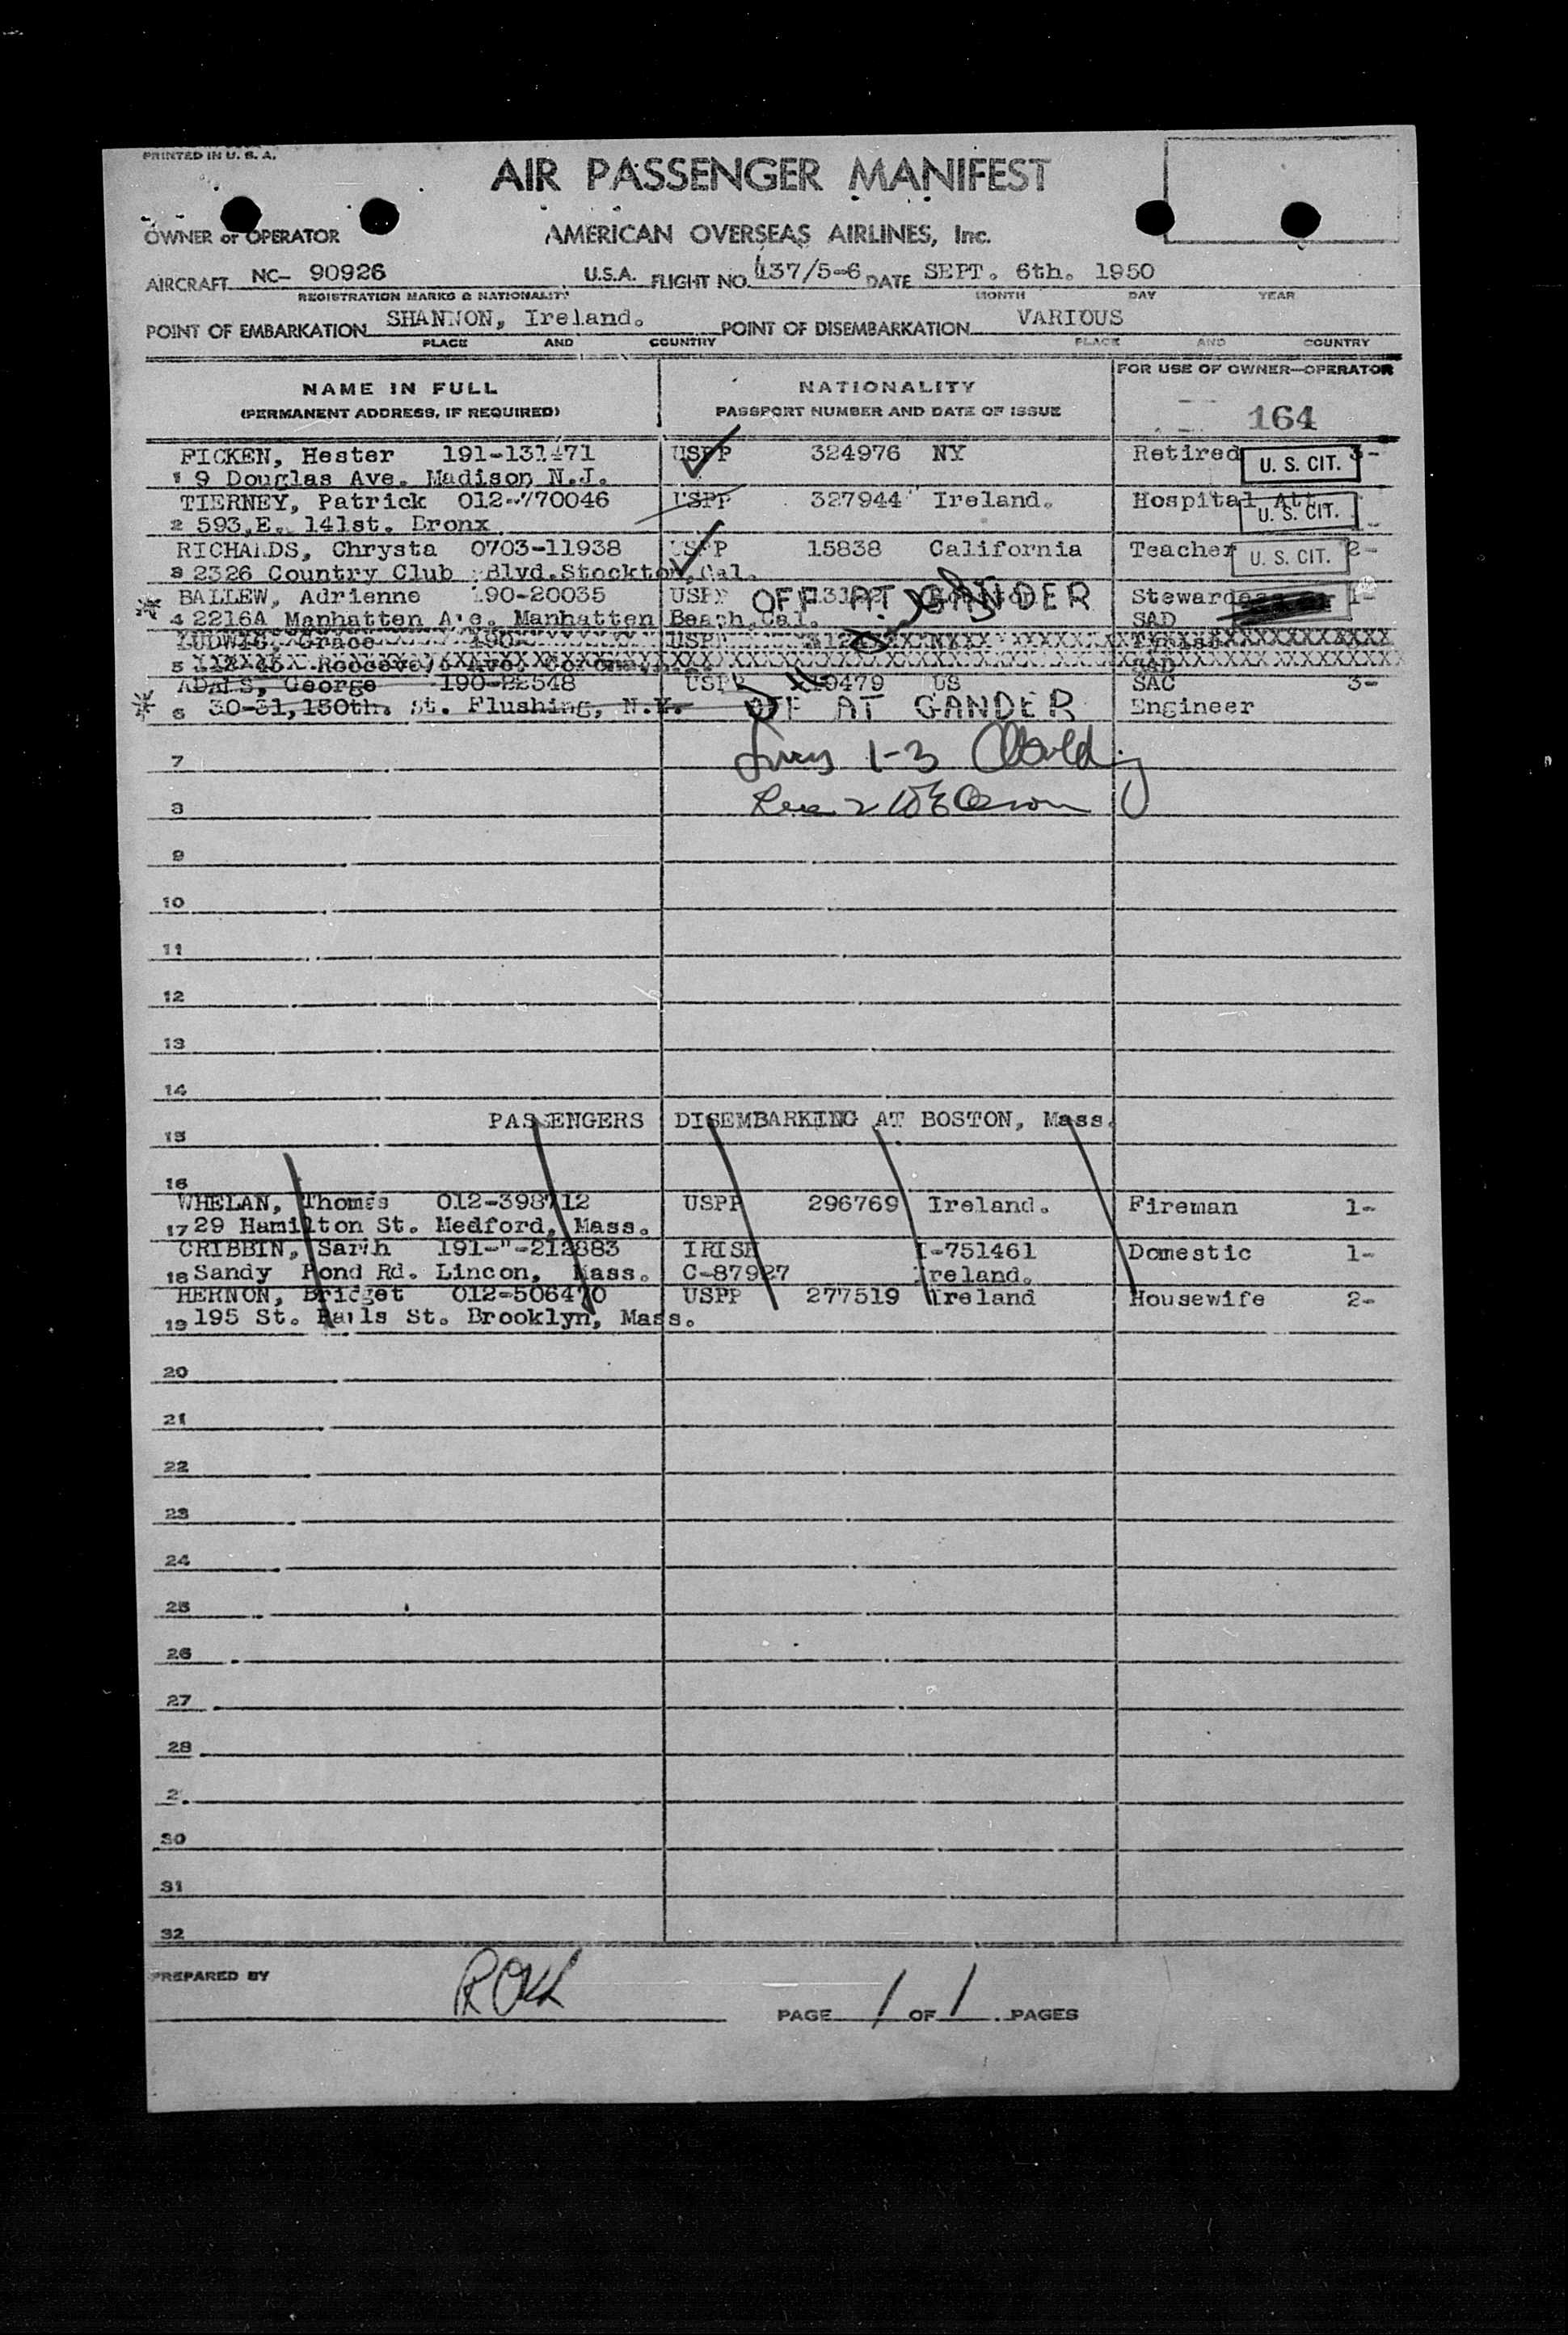 PRINTED IN U. S. A.
AIR PASSENGER MANIFEST
OWNER or OPERATOR AMERICAN OVERSEAS AIRLINES, Inc.
AIRCRAFT NC- 90926 U.S.A. FLIGHT NO. 137/5-6 DATE SEPT. 6th. 1950
REGISTRATION MARKS & NATIONALITY MONTH DAY YEAR
POINT OF EMBARKATION SHANNON, Ireland. POINT OF DISEMBARKATION VARIOUS
PLACE AND COUNTRY PLACE AND COUNTRY
NAME IN FULL NATIONALITY FOR USE OF OWNER—OPERATOR
(PERMANENT ADDRESS, IF REQUIRED) PASSPORT NUMBER AND DATE OF ISSUE 164
PICKEN, Hester 191-131471 USPP 324976 NY Retired U. S. CIT. 3-
1 9 Douglas Ave. Madison N.J.
TIERNEY, Patrick 012-770046 USPP 327944 Ireland. Hospital Att. U. S. CIT. 1-
2 593,E. 141st. Bronx
RICHARDS, Chrysta 0703-11938 USPP 15838 California Teacher U. S. CIT. 2-
3 2326 Country Club Blvd.Stockton,Cal.
BALLEW, Adrienne 190-20035 USPP OFF AT GANDER Stewardess 1-
4 2216A Manhatten Ave. Manhatten Beach,Cal. SAD
LUDWIG, Grace 190- USPP Typist
5 SAD
ADAMS, George 190-22548 USPP 19479 US SAC 3-
6 30-31,150th. St. Flushing, N.Y. OFF AT GANDER Engineer
7 1-3
8 2
9
10
11
12
13
14
PASSENGERS DISEMBARKING AT BOSTON, Mass.
15
16
WHELAN, Thomas 012-398712 USPP 296769 Ireland. Fireman 1-
17 29 Hamilton St. Medford, Mass.
CRIBBIN, Sarah 191-"-212883 IRISH I-751461 Domestic 1-
18 Sandy Pond Rd. Lincon, Mass. C-87927 Ireland.
HERNON, Bridget 012-506470 USPP 277519 Ireland Housewife 2-
19 195 St. Pauls St. Brooklyn, Mass.
20
21
22
23
24
25
26
27
28
2
30
31
32
PREPARED BY
PAGE 1 OF 1 PAGES